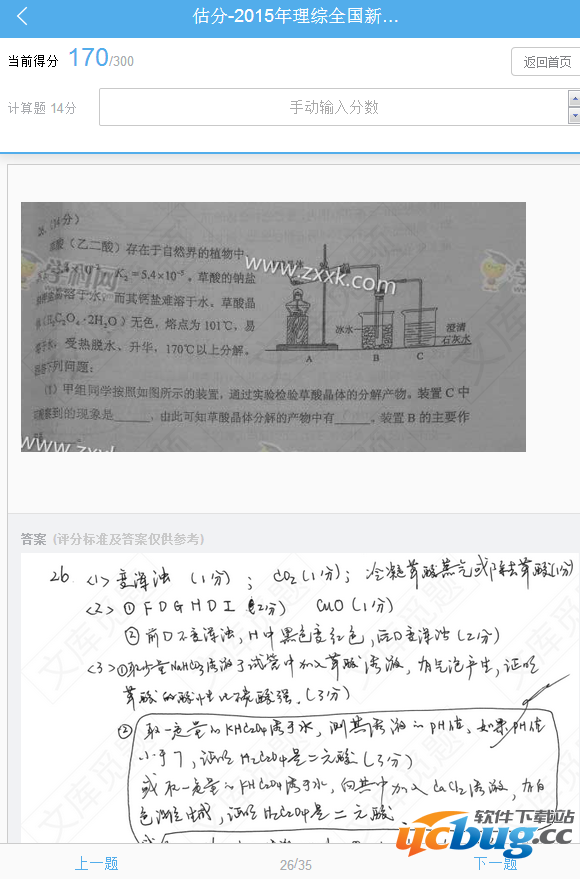 估分-2015年理综全国新...
当前得分 170/300
返回首页
计算题 14分
手动输入分数
26.(14分)
草酸(乙二酸)存在于自然界的植物中,
K₂=5.4×10⁻⁵。草酸的钠盐
溶于水,而其钙盐难溶于水。草酸晶
(H₂C₂O₄·2H₂O)无色,熔点为101℃,易
溶于水,受热脱水、升华,170℃以上分解。
回答下列问题:
冰水
澄清
石灰水
A B C
(1)甲组同学按照如图所示的装置,通过实验检验草酸晶体的分解产物。装置C中
可观察到的现象是______,由此可知草酸晶体分解的产物中有______。装置B的主要作
学科网
www.zxxk.com
www.zxxk
答案 (评分标准及答案仅供参考)
26 <1> 变浑浊 (1分); CO₂(1分); 冷凝草酸蒸气或除去草酸(1分)
<2> ① F D G H D I (2分) CuO (1分)
② 前D不变浑浊,H中黑色变红色,后D变浑浊(2分)
<3> ①取少量NaHCO₃溶液于试管中加入草酸溶液,有气泡产生,证明
草酸的酸性比碳酸强。(3分)
② 取一定量的KHC₂O₄溶于水,测其溶液的pH值,如果pH值
小于7,证明H₂C₂O₄是二元酸(3分)
或取一定量的KHC₂O₄溶于水,向其中加入CaCl₂溶液,有白
色沉淀生成,证明H₂C₂O₄是二元酸.
软件下载站
ucbug.cc
上一题
26/35
下一题